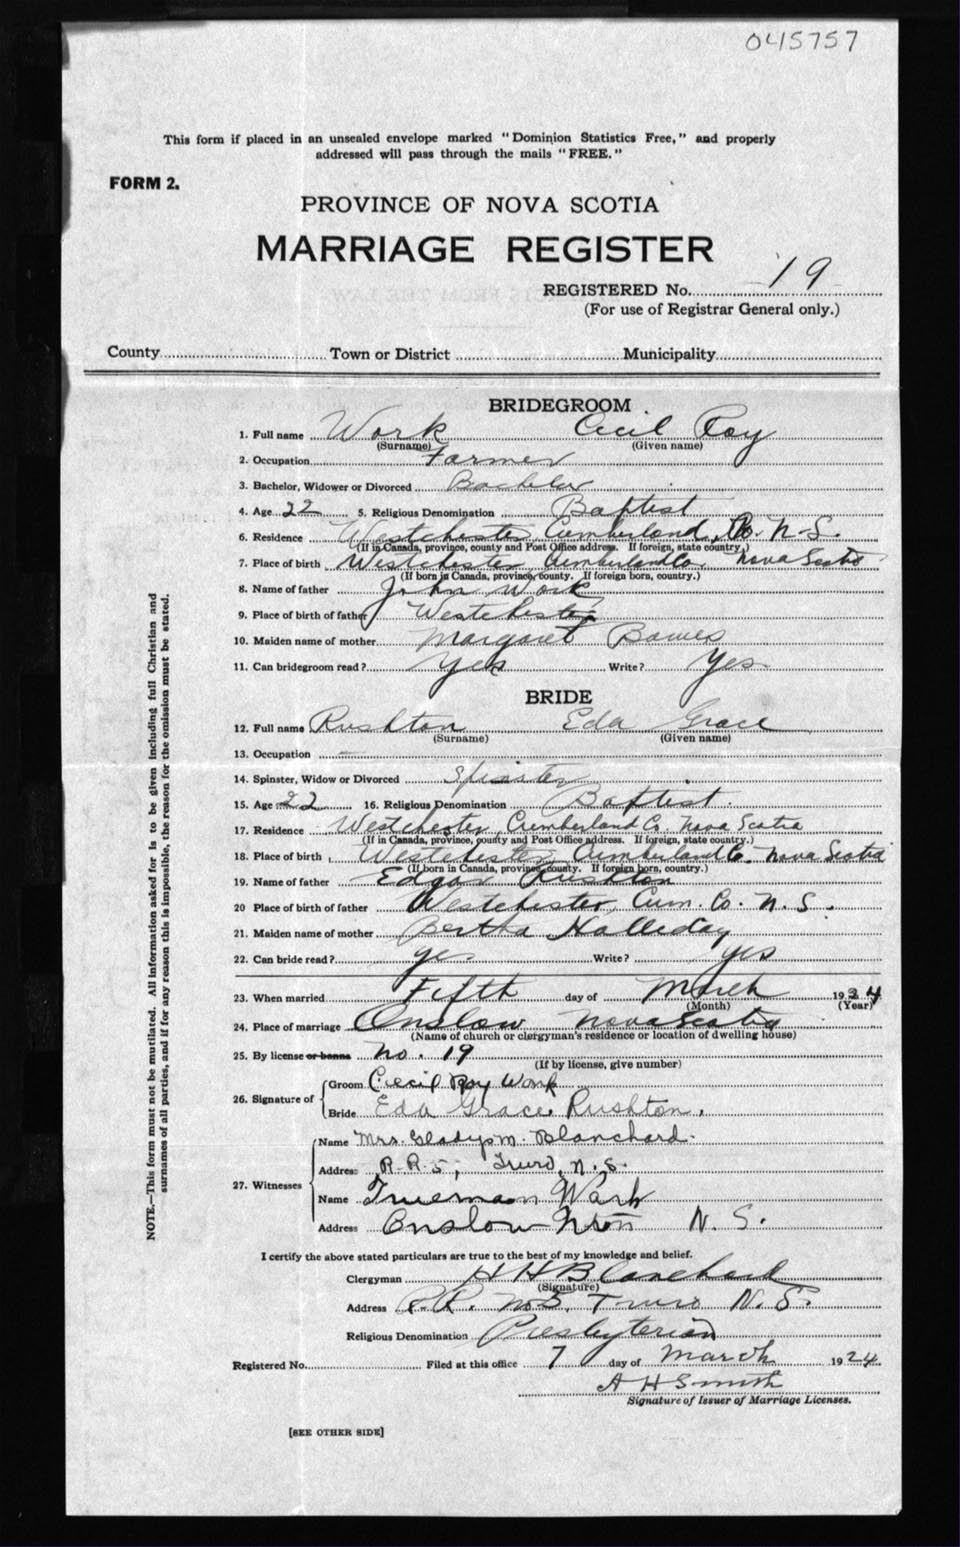 045757
This form if placed in an unsealed envelope marked "Dominion Statistics Free," and properly
addressed will pass through the mails "FREE."
FORM 2.
PROVINCE OF NOVA SCOTIA
MARRIAGE REGISTER
REGISTERED No. 19
(For use of Registrar General only.)
County Town or District Municipality
BRIDEGROOM
1. Full name Work Cecil Roy
(Surname) (Given name)
2. Occupation Farmer
3. Bachelor, Widower or Divorced Bachelor
4. Age 22 5. Religious Denomination Baptist
6. Residence Westchester, Cumberland, Co. N.S.
(If in Canada, province, county and Post Office address. If foreign, state country.)
7. Place of birth Westchester, Cumberland Co. Nova Scotia
(If born in Canada, province, county. If foreign born, country.)
8. Name of father John Work
9. Place of birth of father Westchester
10. Maiden name of mother Margaret
11. Can bridegroom read? Yes Write? Yes
BRIDE
12. Full name Rushton Eda Grace
(Surname) (Given name)
13. Occupation —
14. Spinster, Widow or Divorced Spinster
15. Age 22 16. Religious Denomination Baptist.
17. Residence Westchester, Cumberland Co, Nova Scotia
(If in Canada, province, county and Post Office address. If foreign, state country.)
18. Place of birth Westchester, Cumberland Co. Nova Scotia
(If born in Canada, province, county. If foreign born, country.)
19. Name of father Edgar Rushton
20 Place of birth of father Westchester, Cum. Co. N.S.
21. Maiden name of mother Bertha Halliday
22. Can bride read? yes Write? yes
23. When married Fifth day of March 1924
(Month) (Year)
24. Place of marriage Onslow Nova Scotia
(Name of church or clergyman's residence or location of dwelling house)
25. By license or banns No. 19
(If by license, give number)
26. Signature of
Groom Cecil Roy Work
Bride Eda Grace Rushton.
27. Witnesses
Name Mrs. Gladys M. Blanchard.
Address R.R.5, Truro, N.S.
Name Trueman Wark
Address Onslow Stn N.S.
I certify the above stated particulars are true to the best of my knowledge and belief.
Clergyman H H Blanchard
(Signature)
Address R.R. No 5, Truro N.S.
Religious Denomination Presbyterian
Registered No. Filed at this office 7 day of March 1924
A H Smith
Signature of Issuer of Marriage Licenses.
[SEE OTHER SIDE]
NOTE.—This form must not be mutilated. All information asked for is to be given including full Christian and
surnames of all parties, and if for any reason this is impossible, the reason for the omission must be stated.